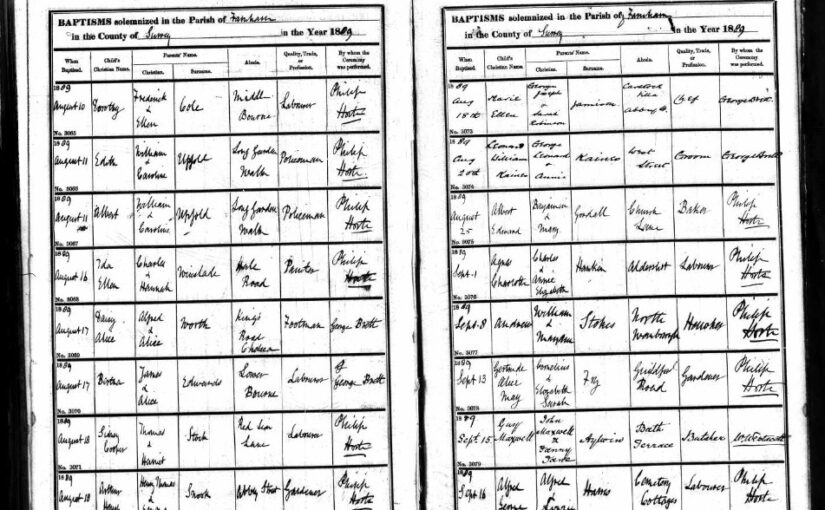 BAPTISMS solemnized in the Parish of Farnham
in the County of Surrey in the Year 1889
When Baptized. Child's Christian Name. Parents' Name. Christian. Surname. Abode. Quality, Trade, or Profession. By whom the Ceremony was performed.
1889 August 10 Dorothy Frederick & Ellen Cole Middle Bourne Labourer Philip Hoste
No. 3065
1889 August 11 Edith William & Caroline Upfold Long Garden Walk Policeman Philip Hoste
No. 3066
1889 August 11 Albert William & Caroline Upfold Long Garden Walk Policeman Philip Hoste
No. 3067
1889 August 16 Ida Ellen Charles & Hannah Winslade Hale Road Painter Philip Hoste
No. 3068
1889 August 17 Daisy Alice Alfred & Alice Worth King's Road Chelsea Footman George Brett
No. 3069
1889 August 17 Bertha James & Alice Edwards Lower Bourne Labourer George Brett
No. 3070
1889 August 18 Sidney Cooper Thomas & Harriet Stock Red Lion Lane Labourer Philip Hoste
No. 3071
1889 August 18 Arthur Henry Thomas Snook Abbey Street Gardener Philip Hoste
BAPTISMS solemnized in the Parish of Farnham
in the County of Surrey in the Year 1889
When Baptized. Child's Christian Name. Parents' Name. Christian. Surname. Abode. Quality, Trade, or Profession. By whom the Ceremony was performed.
1889 Aug 18th Marie Ellen George Joseph & Sarah Robinson Jamison Villa Abbey St. George Brett
No. 3073
1889 Aug 20th Leonard William Kaines George Leonard & Annie Kaines West Street Groom George Brett
No. 3074
1889 August 25 Albert Edward Benjamin & Mary Goodall Church Lane Baker Philip Hoste
No. 3075
1889 Sept. 1 Agnes Charlotte Charles & Annie Elizabeth Hankin Aldershot Labourer Philip Hoste
No. 3076
1889 Sept. 8 Andrew William & Maryann Stokes North Warnborough Hawker Philip Hoste
No. 3077
1889 Sept 13 Gertrude Alice May Cornelius & Elizabeth Sarah Fry Guildford Road Gardener Philip Hoste
No. 3078
1889 Sept 15 Guy Maxwell John Maxwell & Fanny Jane Aylwin Bath Terrace Butcher
No. 3079
1889 Sept 16 Alfred George Alfred & Harris Cemetery Cottages Labourer Philip Hoste